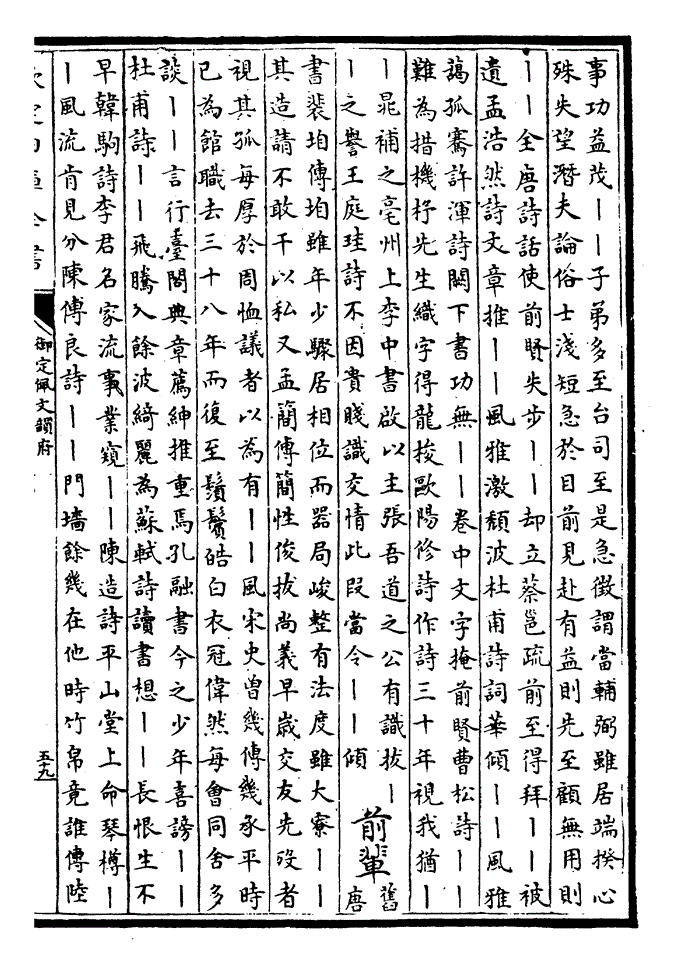 事功益茂——子弟多至台司至是急徵謂當輔弼雖居端揆心
殊失望潛夫論俗士淺短急於目前見赴有益則先至顧無用則
——全唐詩話使前賢失步——却立蔡邕疏前至得拜——被
遺孟浩然詩文章推——風雅激頹波杜甫詩詞華傾——風雅
藹孤騫許渾詩闕下書功無——卷中文字掩前賢曹松詩——
難為措機杼先生織字得龍梭歐陽修詩作詩三十年視我猶—
—晁補之亳州上李中書啟以主張吾道之公有識拔—
—之譽王庭珪詩不因貴賤識交情此段當令——傾
前輩
舊
唐
書裴垍傳垍雖年少驟居相位而器局峻整有法度雖大寮——
其造請不敢干以私又孟簡傳簡性俊拔尚義早歲交友先歿者
視其孤每厚於周恤議者以為有——風宋史曾幾傳幾承平時
已為館職去三十八年而復至鬚鬢皓白衣冠偉然每會同舍多
談——言行臺閣典章薦紳推重焉孔融書今之少年喜謗——
杜甫詩——飛騰入餘波綺麗為蘇軾詩讀書想——長恨生不
早韓駒詩李君名家流事業窺——陳造詩平山堂上命琴樽—
—風流肯見分陳傅良詩——門墻餘幾在他時竹帛竟誰傳陸
欽定四庫全書
御定佩文韻府
五十九